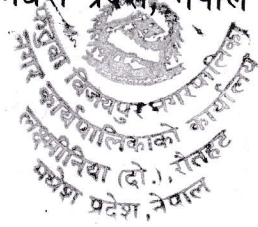 मधेश प्रदेश, नेपाल
फतुवा विजयपुर नगरपालिका
नगर कार्यपालिकाको कार्यालय
लक्ष्मीनिया (दो.), रौतहट
मधेश प्रदेश, नेपाल